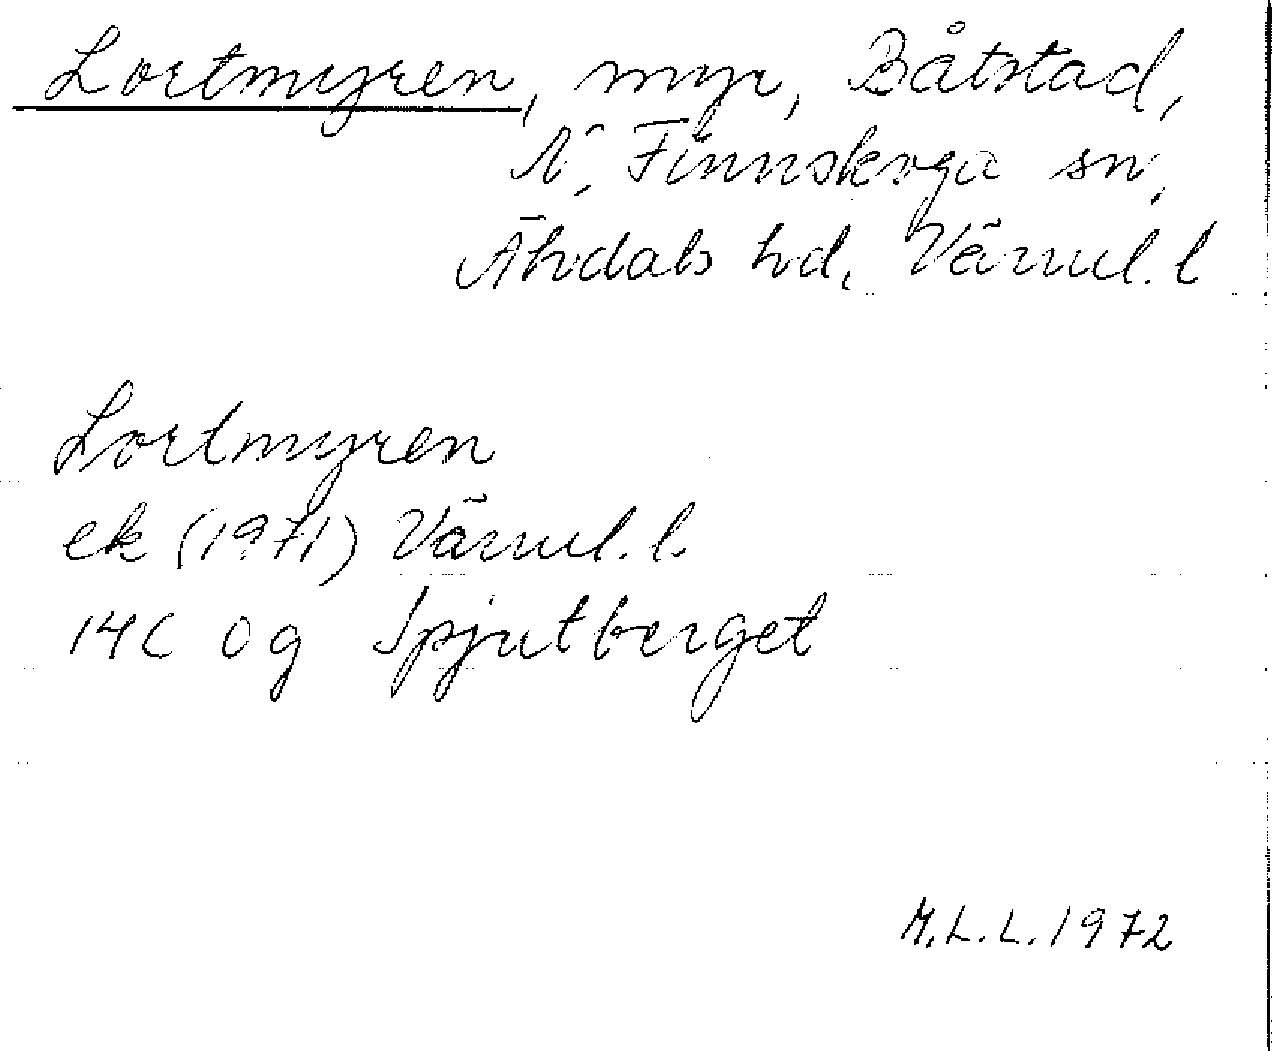 Lortmyren, myr, Båtstad,
N. Finnskoga sn,
Älvdals hd, Värml. l
Lortmyren
ek (1971) Värml. l.
14C 0g Spjutberget
M.L.L. 1972